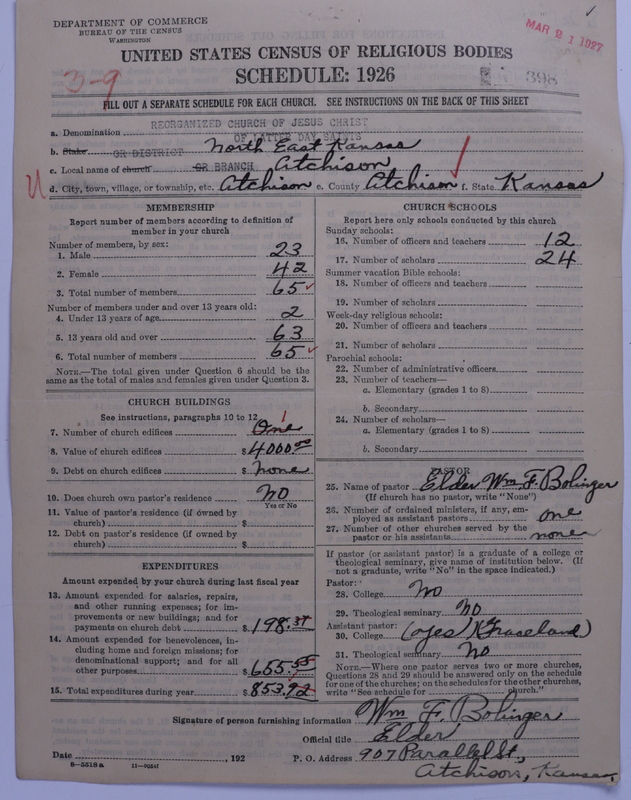 DEPARTMENT OF COMMERCE
BUREAU OF THE CENSUS
WASHINGTON
MAR 21 1927
UNITED STATES CENSUS OF RELIGIOUS BODIES
SCHEDULE: 1926
3-9
398
FILL OUT A SEPARATE SCHEDULE FOR EACH CHURCH. SEE INSTRUCTIONS ON THE BACK OF THIS SHEET
REORGANIZED CHURCH OF JESUS CHRIST
a. Denomination
OF LATTER DAY SAINTS
b. Stake OR DISTRICT North East Kansas
c. Local name of church OR BRANCH Atchison
d. City, town, village, or township, etc. Atchison e. County Atchison f. State Kansas
MEMBERSHIP
Report number of members according to definition of
member in your church
Number of members, by sex:
1. Male 23
2. Female 42
3. Total number of members 65
Number of members under and over 13 years old:
4. Under 13 years of age 2
5. 13 years old and over 63
6. Total number of members 65
NOTE.—The total given under Question 6 should be the
same as the total of males and females given under Question 3.
CHURCH BUILDINGS
See instructions, paragraphs 10 to 12
7. Number of church edifices One 1
8. Value of church edifices $4000.00
9. Debt on church edifices $ none
10. Does church own pastor's residence No
Yes or No
11. Value of pastor's residence (if owned by
church) $
12. Debt on pastor's residence (if owned by
church) $
EXPENDITURES
Amount expended by your church during last fiscal year
13. Amount expended for salaries, repairs,
and other running expenses; for im-
provements or new buildings; and for
payments on church debt $198.37
14. Amount expended for benevolences, in-
cluding home and foreign missions; for
denominational support; and for all
other purposes $655.55
15. Total expenditures during year $853.92
CHURCH SCHOOLS
Report here only schools conducted by this church
Sunday schools:
16. Number of officers and teachers 12
17. Number of scholars 24
Summer vacation Bible schools:
18. Number of officers and teachers
19. Number of scholars
Week-day religious schools:
20. Number of officers and teachers
21. Number of scholars
Parochial schools:
22. Number of administrative officers
23. Number of teachers—
a. Elementary (grades 1 to 8)
b. Secondary
24. Number of scholars—
a. Elementary (grades 1 to 8)
b. Secondary
PASTOR
25. Name of pastor Elder Wm F. Bolinger
(If church has no pastor, write "None")
26. Number of ordained ministers, if any, em-
ployed as assistant pastors one
27. Number of other churches served by the
pastor or his assistants none
If pastor (or assistant pastor) is a graduate of a college or
theological seminary, give name of institution below. (If
not a graduate, write "No" in the space indicated.)
Pastor:
28. College No
29. Theological seminary No
Assistant pastor:
30. College (yes) (Graceland)
31. Theological seminary No
NOTE.—Where one pastor serves two or more churches,
Questions 28 and 29 should be answered only on the schedule
for one of the churches; on the schedules for the other churches,
write "See schedule for church."
Signature of person furnishing information Wm F. Bolinger
Official title Elder
Date , 192 P. O. Address 907 Parallel St.,
8-5518a Atchison, Kansas